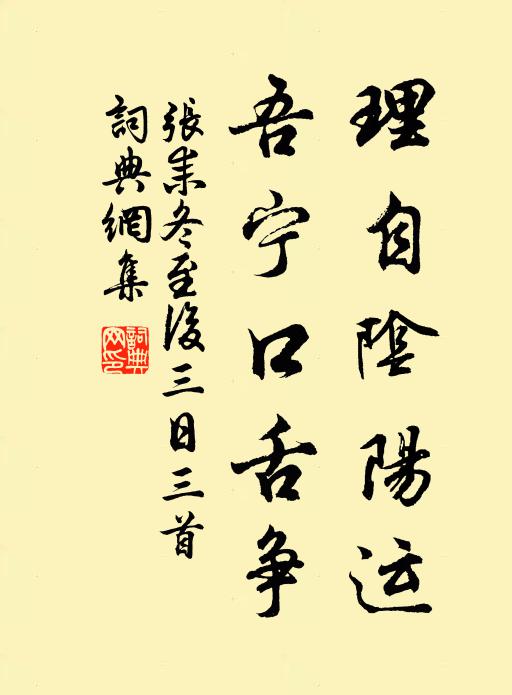 理自陰陽运
吾宁口舌争
張耒冬至後三日三首
詞典網集
詞典网印